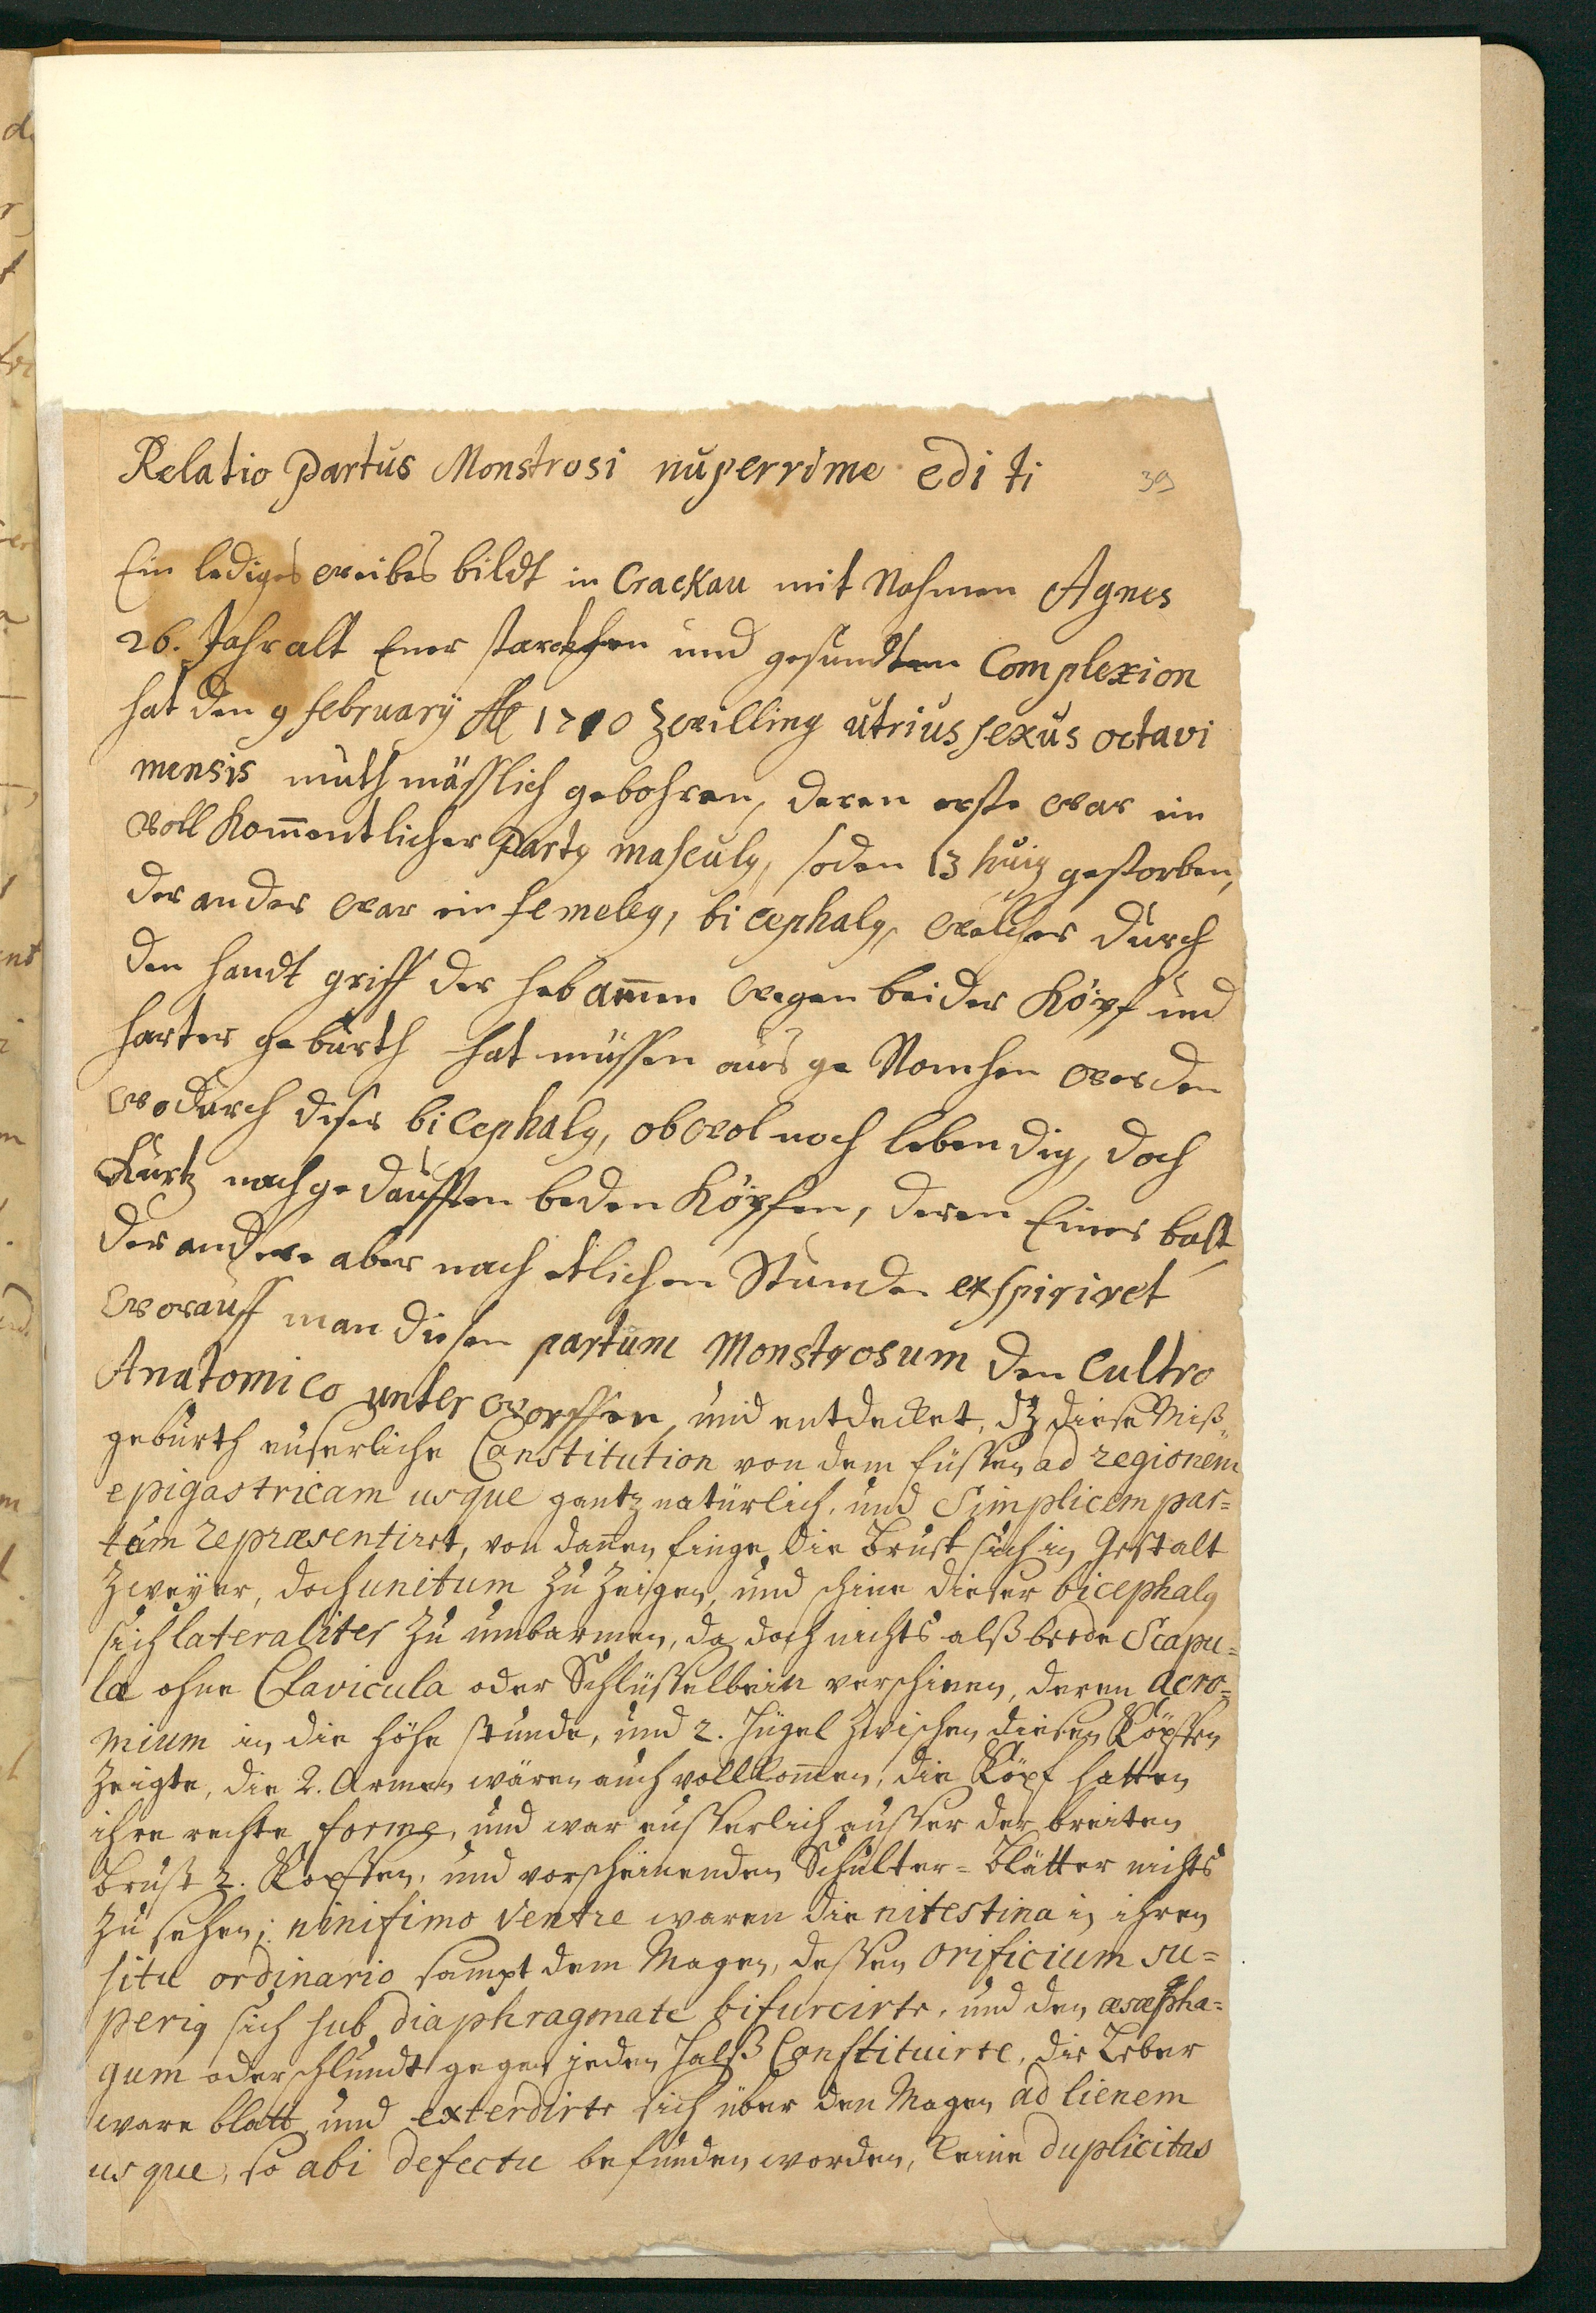 Relatio Partus Monstrosi nuperrime editi
39
Ein lediges weibes bildt in Crackau mit Nahmen Agnes
26. Jahr alt Einer starckhen und gesundten Complexion
hat den 9 february 1710 zwilling utrius sexus octavi
mensis muthmässlich gebohren, deren erste war ein
voll kom̄entlicher Partq masculq, so den 13 huiq gestorben,
der ander war ein femeleq, bicephalq, welcher durch
den handt griff der hebam̄en wegen beider Köpf und
harter geburth hat müssen aus ge Nomhen werden
wodurch diser bicephalq, obwol noch lebendig, doch
Kurtz nach gedaufften beden Köpfen, deren Einer balt
der andere aber nach etlichen Stunden exspiriret
worauff man diesen partum Monstrosum den Cultro
Anatomico unterworffen, und entdecket, dz diese Miß-
geburth euserliche Constitution von dem füssen ad regionem
epigastricam usque gantz natürlich, und Simplicem par=
tum repræsentirt, von dan̄en finge die Brust sich in Gestalt
zweyer, doch unitum zu zeigen, und schine dieser bicephalq
sich lateraliter zu umbarmen, da doch nichts alß beede Scapu=
læ ohne Clavicula oder Schlüsselbein verschinen, deren acro=
mium in die höhe stunde, und 2. Hügel zwischen diesen Köpffen
zeigte, die 2. Armen wären auch vollkom̄en, die Köpf hatten
ihre rechte forme, und war eusserlich ausser der breiten
Brust 2. Köpffen, und vorscheinenden Schulter=Blätter nichts
zu sehen; ninifimo Ventre waren die nitestina in ihren
situ ordinario sampt dem Magen, dessen orificium su=
periq sich sub diaphragmate bifurcirte, und den æsæpha=
gum oder schlundt gegen jeden Halß Constituirte, die Leber
ware blatt und exterdirte sich über den Magen ad lienem
usque, so abi defectu befunden worden, keine duplicitas